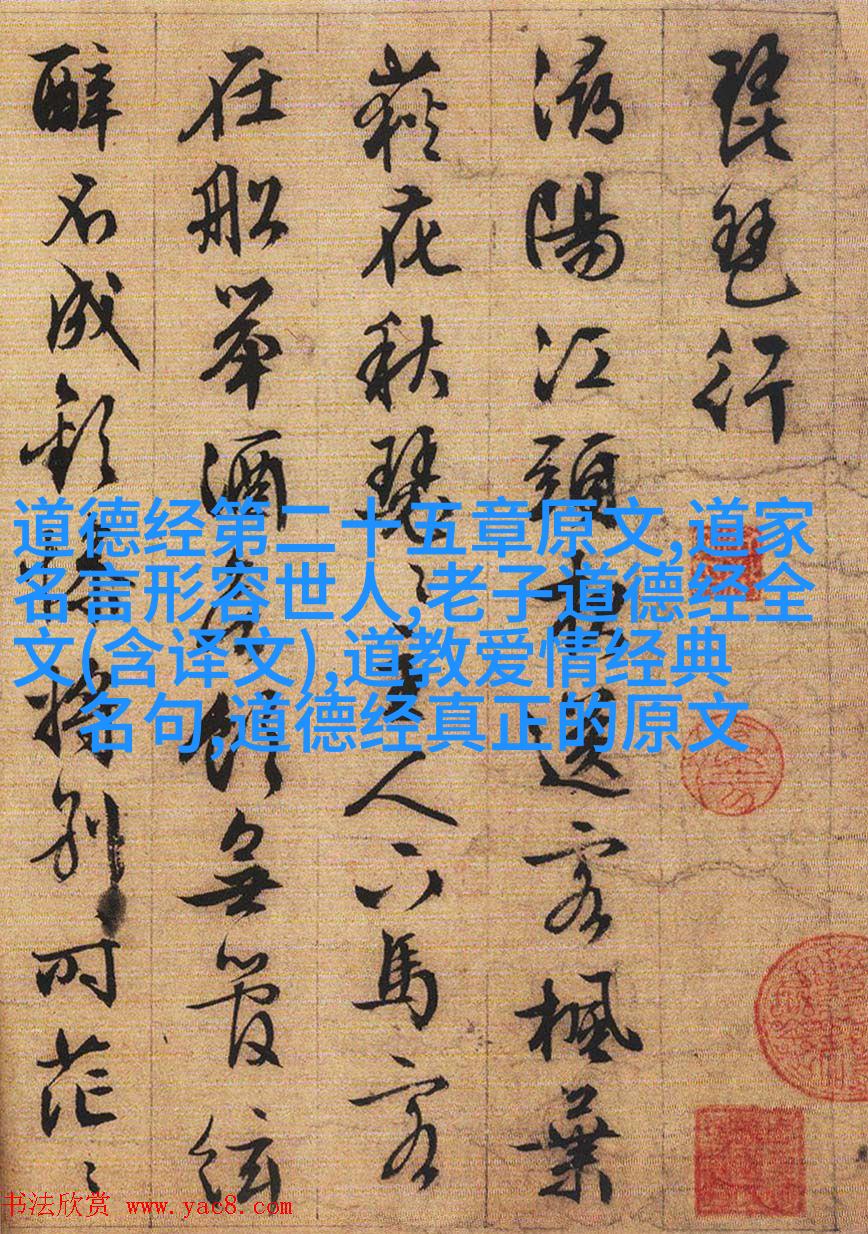 琵琶行
潯陽江頭夜送客楓葉
荻花秋瑟〻主人下馬客
在船舉酒欲飲無管絃
醉不成歡慘將別〻時茫〻
道德经第二十五章原文,道家
名言形容世人,老子道德经全
文(含译文),道教爱情经典
名句,道德经真正的原文
书法欣赏 www.yac8.com